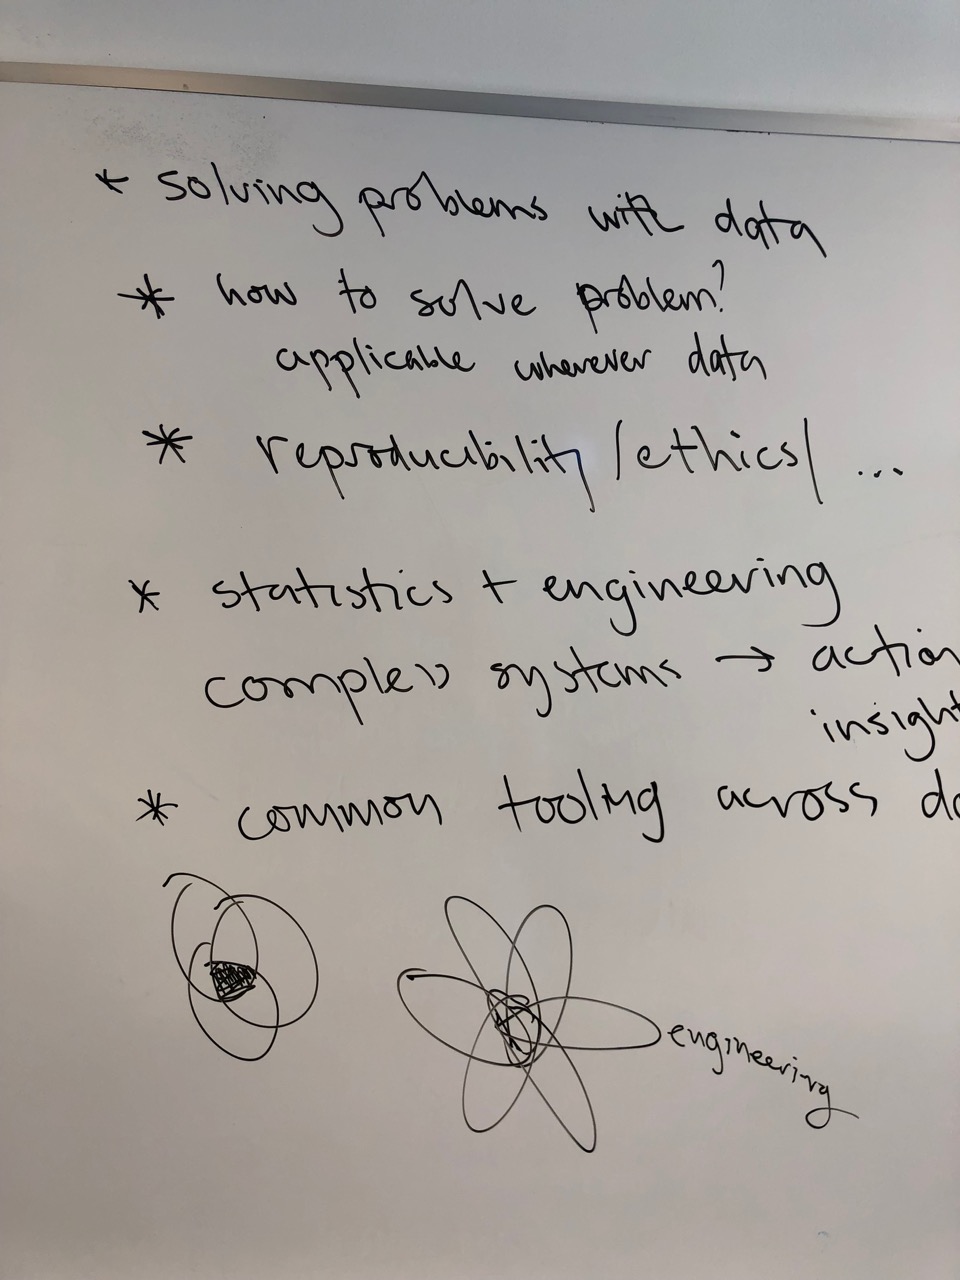 * solving problems with data
* how to solve problem?
applicable wherever data
* reproducibility/ethics/ ...
* statistics + engineering
complex systems → action
insight
* common tooling across
engineering